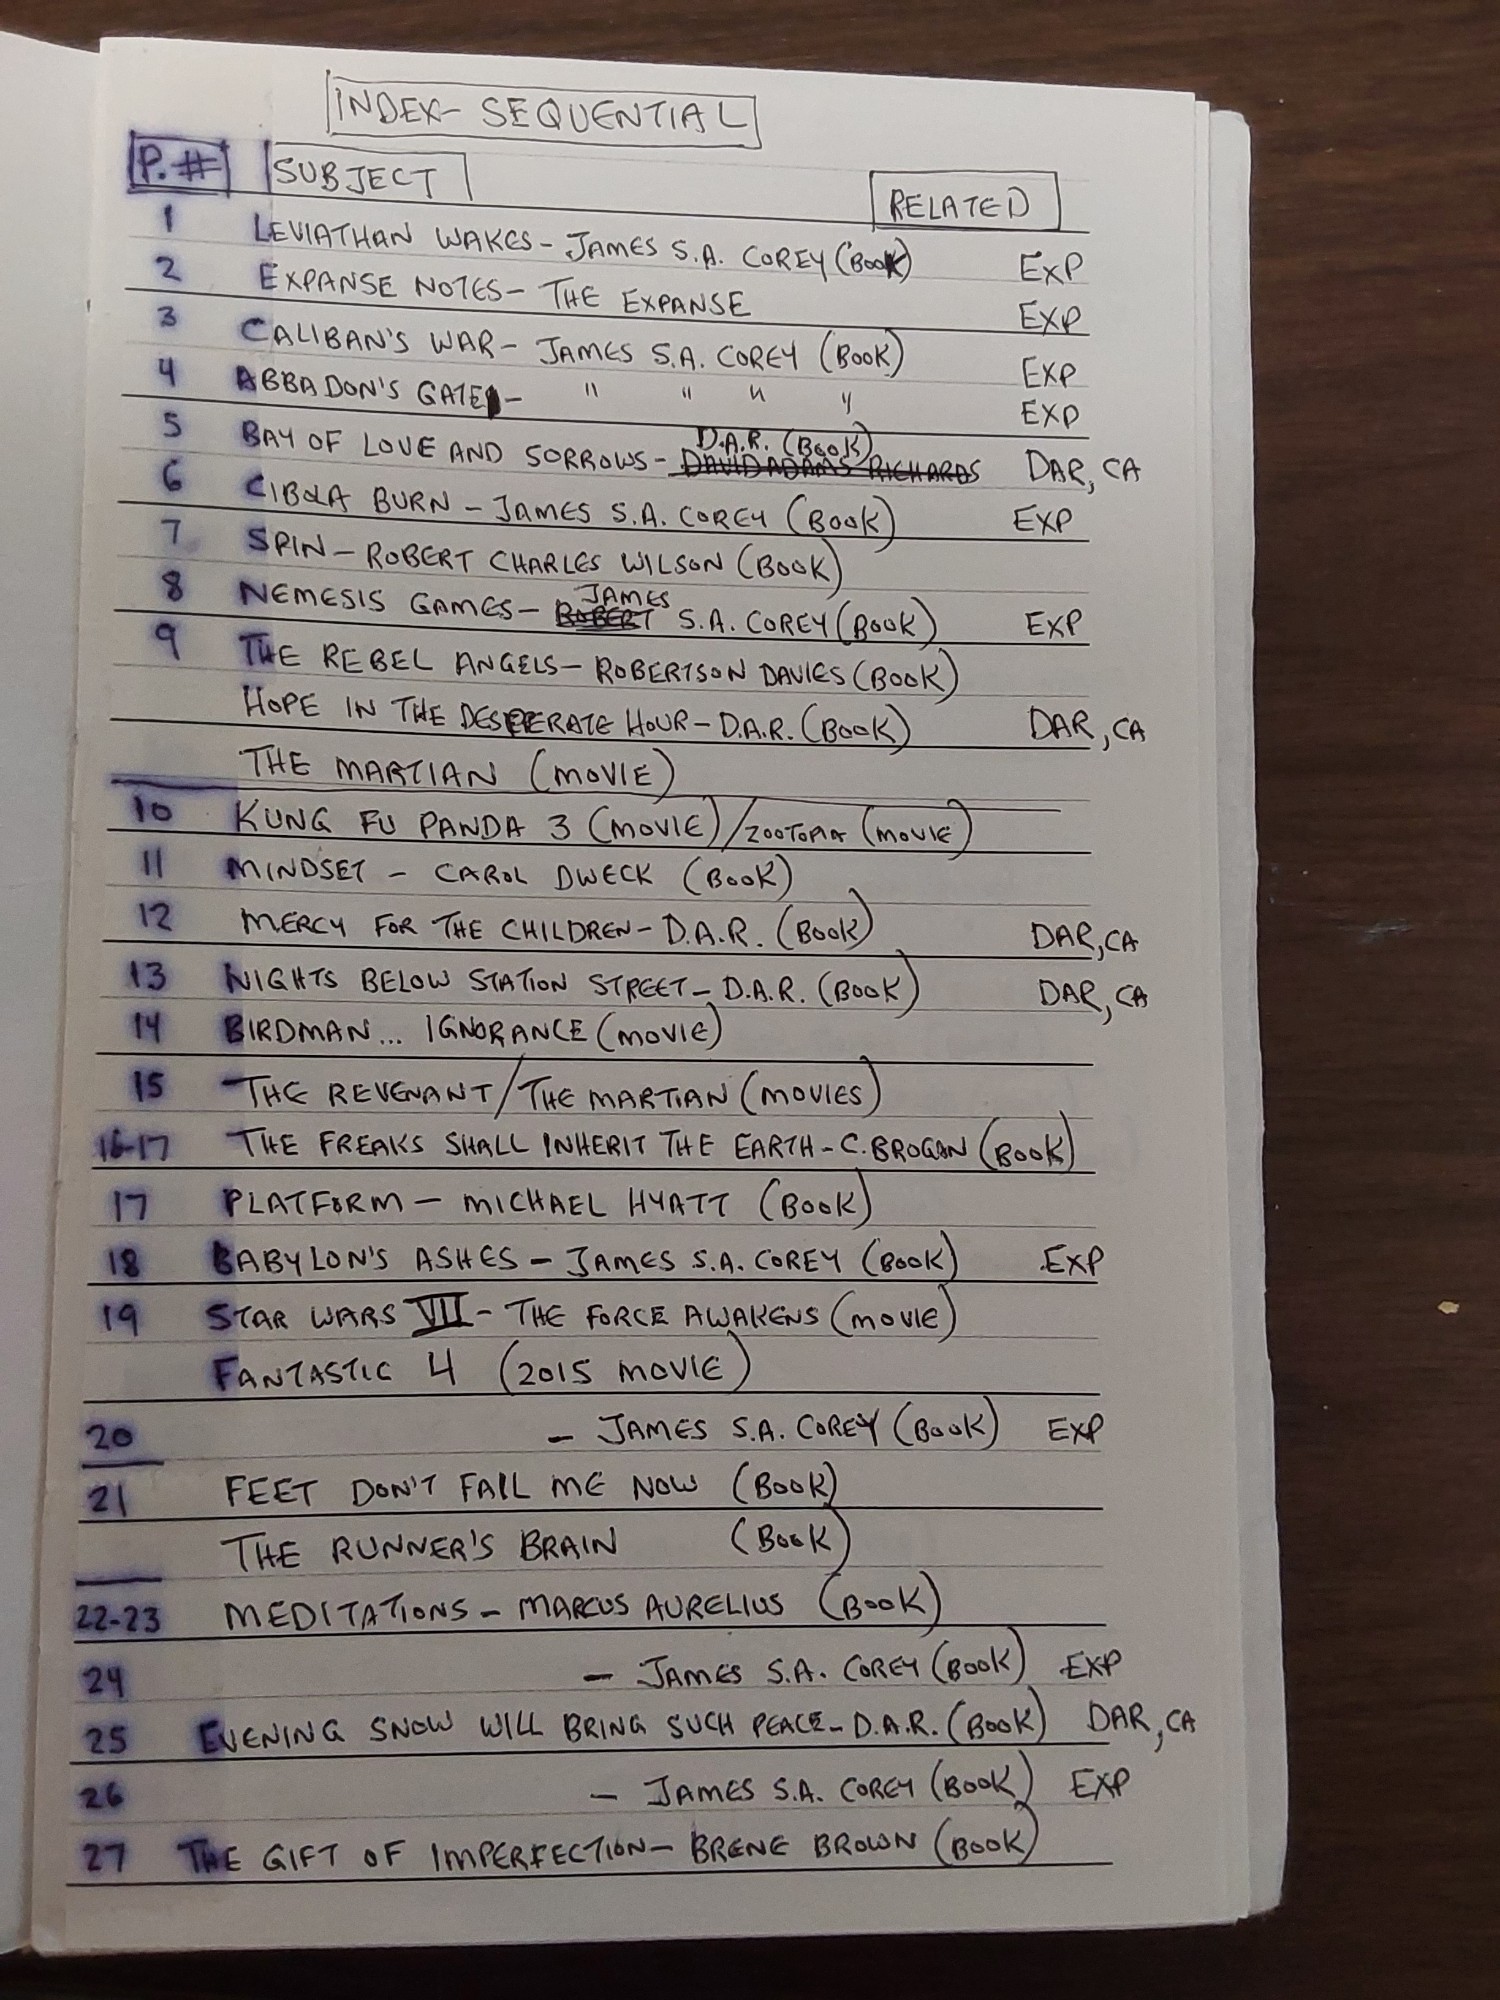 INDEX- SEQUENTIAL
P. # SUBJECT RELATED
1 LEVIATHAN WAKES - JAMES S.A. COREY (BOOK) EXP
2 EXPANSE NOTES - THE EXPANSE EXP
3 CALIBAN'S WAR - JAMES S.A. COREY (BOOK) EXP
4 ABBADON'S GATE - " " " " EXP
5 BAY OF LOVE AND SORROWS - DAVID ADAMS RICHARDS D.A.R. (BOOK) DAR, CA
6 CIBOLA BURN - JAMES S.A. COREY (BOOK) EXP
7 SPIN - ROBERT CHARLES WILSON (BOOK)
8 NEMESIS GAMES - ROBERT JAMES S.A. COREY (BOOK) EXP
9 THE REBEL ANGELS - ROBERTSON DAVIES (BOOK)
HOPE IN THE DESPERATE HOUR - D.A.R. (BOOK) DAR, CA
THE MARTIAN (MOVIE)
10 KUNG FU PANDA 3 (MOVIE) / ZOOTOPIA (MOVIE)
11 MINDSET - CAROL DWECK (BOOK)
12 MERCY FOR THE CHILDREN - D.A.R. (BOOK) DAR, CA
13 NIGHTS BELOW STATION STREET - D.A.R. (BOOK) DAR, CA
14 BIRDMAN... IGNORANCE (MOVIE)
15 THE REVENANT / THE MARTIAN (MOVIES)
16-17 THE FREAKS SHALL INHERIT THE EARTH - C. BROGAN (BOOK)
17 PLATFORM - MICHAEL HYATT (BOOK)
18 BABYLON'S ASHES - JAMES S.A. COREY (BOOK) EXP
19 STAR WARS VII - THE FORCE AWAKENS (MOVIE)
FANTASTIC 4 (2015 MOVIE)
20 - JAMES S.A. COREY (BOOK) EXP
21 FEET DON'T FAIL ME NOW (BOOK)
THE RUNNER'S BRAIN (BOOK)
22-23 MEDITATIONS - MARCUS AURELIUS (BOOK)
24 - JAMES S.A. COREY (BOOK) EXP
25 EVENING SNOW WILL BRING SUCH PEACE - D.A.R. (BOOK) DAR, CA
26 - JAMES S.A. COREY (BOOK) EXP
27 THE GIFT OF IMPERFECTION - BRENE BROWN (BOOK)